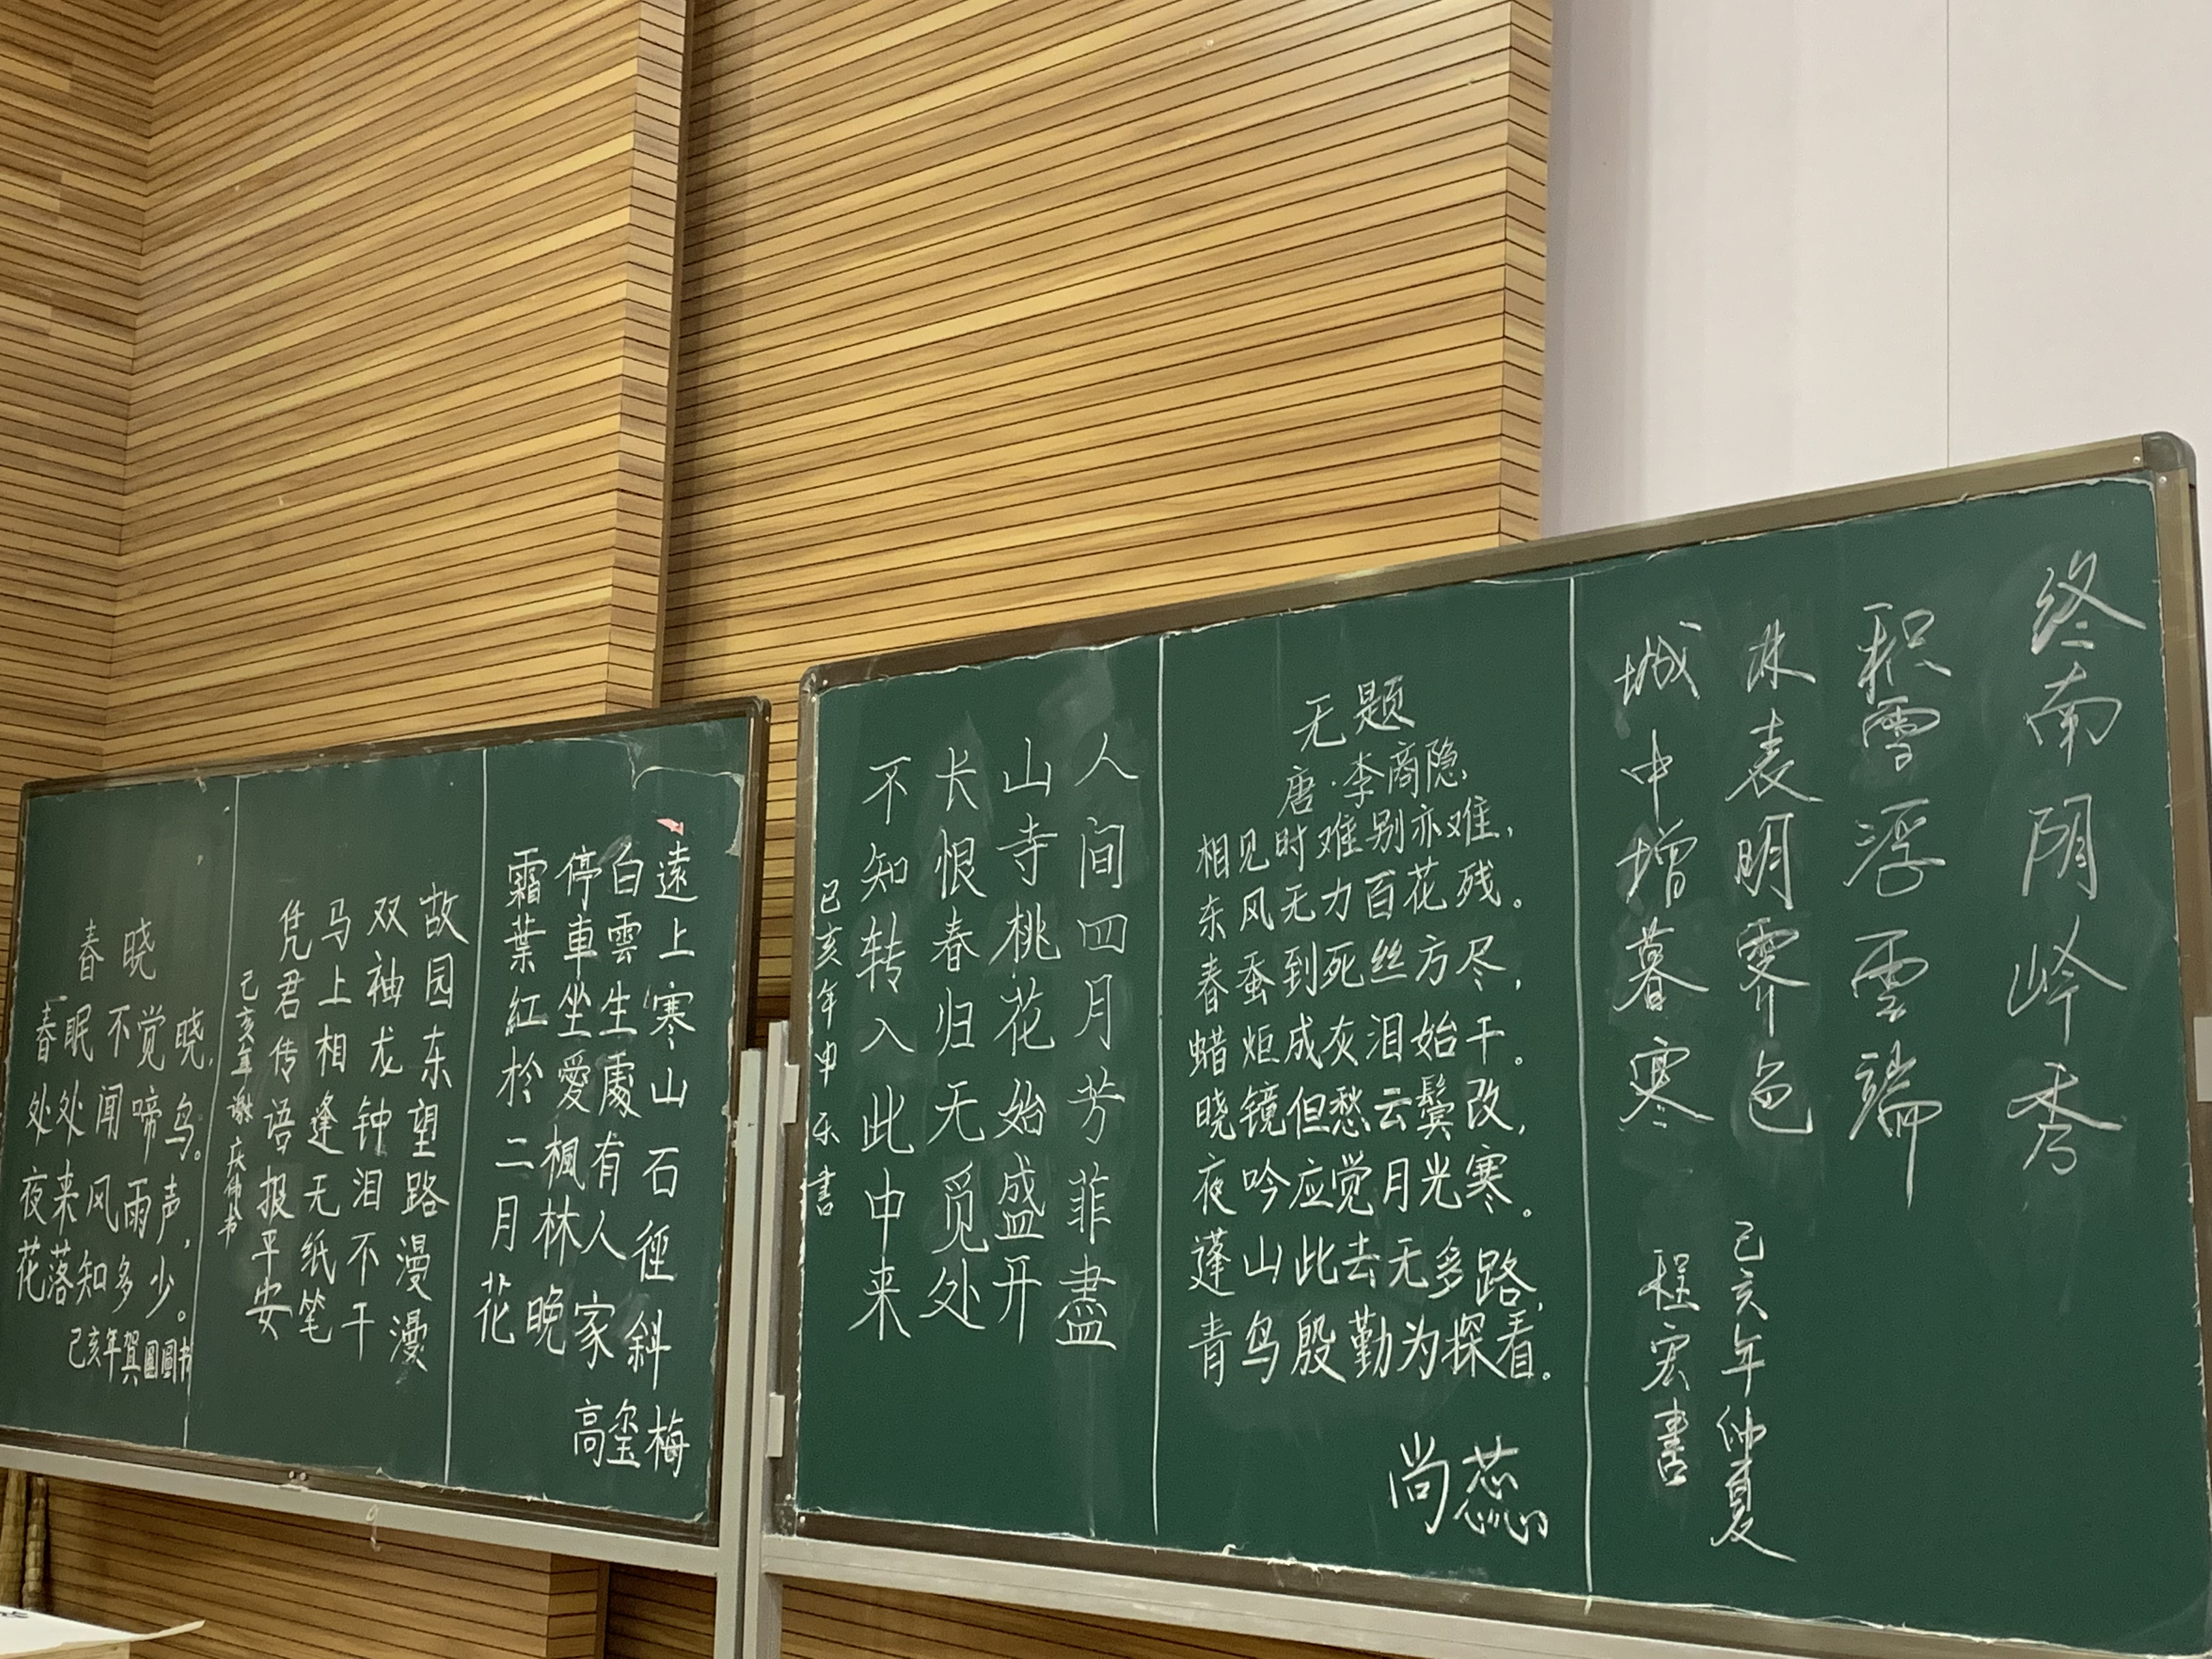 春晓
春眠不觉晓,
处处闻啼鸟。
夜来风雨声,
花落知多少。
己亥年贺圓圓书
故园东望路漫漫
双袖龙钟泪不干
马上相逢无纸笔
凭君传语报平安
己亥年谢庆书
遠上寒山石徑斜
白雲生處有人家
停車坐愛楓林晚
霜葉紅於二月花
高玺梅
人间四月芳菲盡
山寺桃花始盛开
长恨春归无觅处
不知转入此中来
己亥年申乐書
无题
唐·李商隐
相见时难别亦难,
东风无力百花残。
春蚕到死丝方尽,
蜡炬成灰泪始干。
晓镜但愁云鬓改,
夜吟应觉月光寒。
蓬山此去无多路,
青鸟殷勤为探看。
尚蕊
终南阴岭秀
积雪浮雲端
林表明霁色
城中增暮寒
己亥年仲夏
程宏書